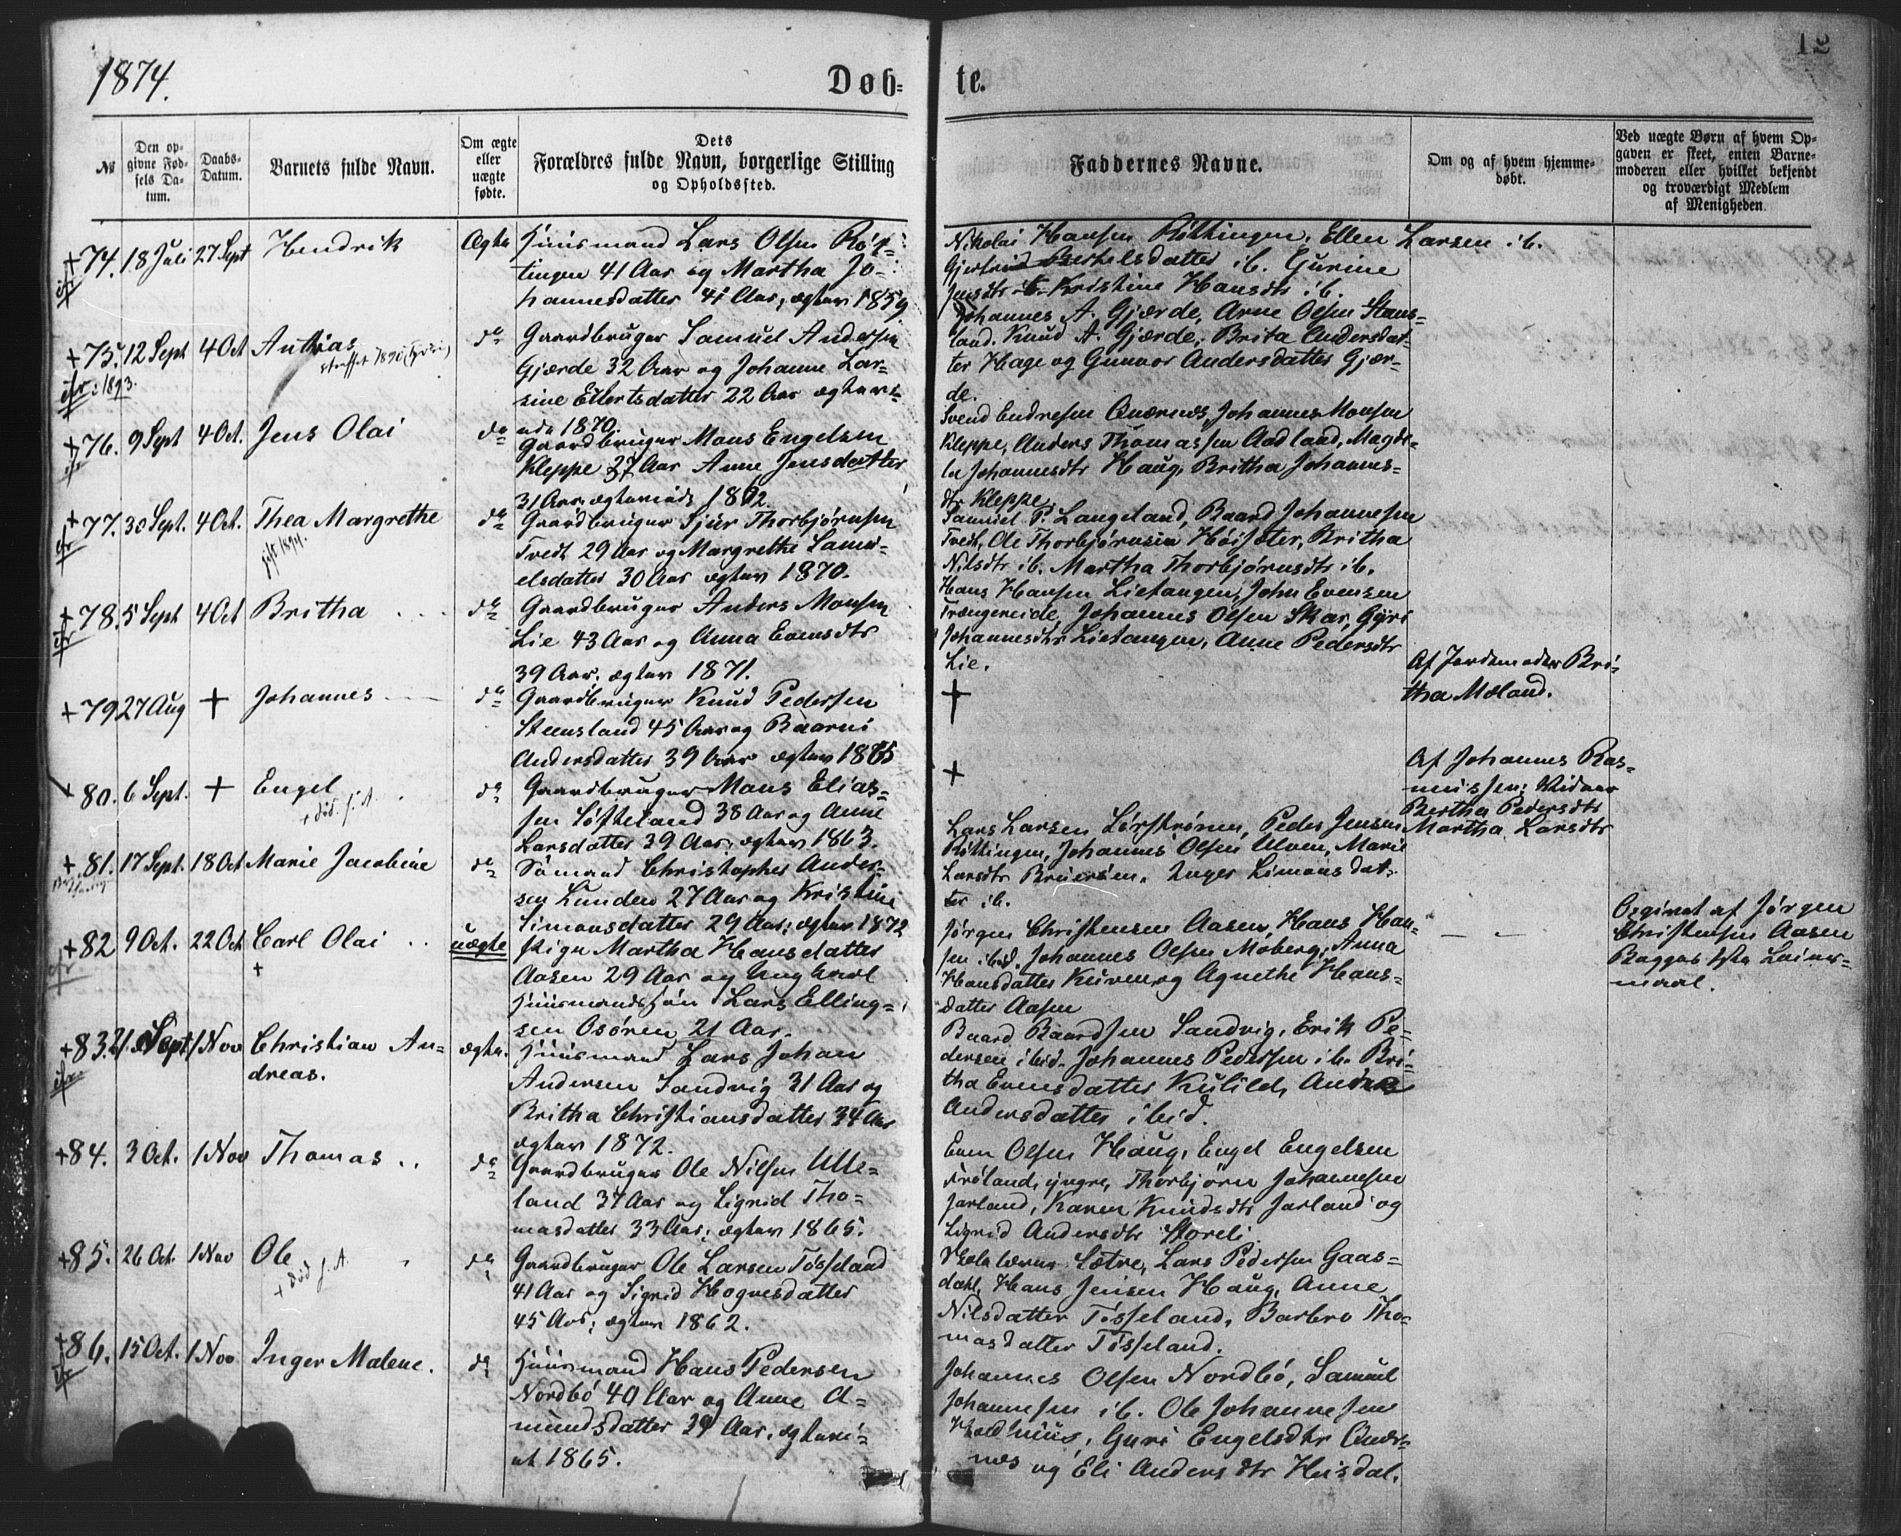 1874.
Døb-
te.
12
№
Den op-
givne Fød-
sels Da-
tum.
Daabs-
Datum.
Barnets fulde Navn.
Om ægte
eller
uægte
fødte.
Dets
Forældres fulde Navn, borgerlige Stilling
og Opholdssted.
Faddernes Navne.
Om og af hvem hjemme-
døbt.
Ved uægte Børn af hvem Op-
gaven er skeet, enten Barne-
moderen eller hvilket bekjendt
og troværdigt Medlem
af Menigheden.
+74. 18 Juli 27 Sept Hendrik Ægte Huusmand Lars Olsen Røt-
tingen 41 Aar og Martha Jo-
hannesdatter 41 Aar, ægtev 1859
Nikolai Hansen Røttingen, Ellen Larsen ib.
Gjertrud Berhelsdatter ib. Gurine
Jensdtr ib. Kristine Hansdtr ib.
+75. 12 Sept 4 Oct Anthias do Gaardbruger Samuel Andersen
Gjærde 32 Aar og Johanne Lar-
sine Ellertsdatter 22 Aar ægtevi-
ede 1870.
1893.
Johannes A. Gjærde, Arne Olsen Stens-
land. Knud A. Gjærde, Brita Andersdat-
ter Hage og Gunvor Andersdatter Gjær-
de.
+76. 9 Sept 4 Oct. Jens Olai do Gaardbruger Mons Engelsen
Kleppe 37 Aar Anne Jensdatter
31 Aar, ægteviede 1872.
Svend Endresen Qværnes, Johannes Monsen
Kleppe, Anders Thomassen Aadland, Magde-
la Johannesdtr Haug, Britha Johannes-
dtr Kleppe
+77. 30 Sept. 4 Oct. Thea Margrethe do Gaardbruger Sjur Thorbjørnsen
gift 1894.
Tvedt 29 Aar og Margrethe Samu-
elsdatter 30 Aar ægtev 1870.
Samuel P. Langeland, Baard Johannesen
Tvedt, Ole Thorbjørnsen Høisæter, Britha
Nilsdtr ib. Martha Thorbjørnsdtr ib.
+78. 5 Sept 4 Oct Britha do Gaardbruger Anders Monsen
Lie 43 Aar og Anna Evensdtr
39 Aar, ægtev 1871.
Hans Hansen Lietangen, John Evensen
Trængereide, Johannes Olsen Skar, Gyri
Johannesdtr Lietangen, Anne Pedersdtr
Lie.
+79 27 Aug + Johannes do Gaardbruger Knud Pedersen
Steensland 45 Aar og Baarni
Andersdatter 39 Aar ægtev 1865
+
Af Jordemoder Bri-
tha Mæland.
80. 6 Sept. + Engel do Gaardbruger Mons Elias-
+ død f. A.
sen Søfteland 38 Aar og Anne
Larsdatter 39 Aar, ægtev 1863.
+
Af Johannes Ras-
mussen; Vidner
Bertha Pedersdtr
Martha Larsdtr
+81. 17 Sept. 18 Oct Marie Jacobine do Sømand Christopher Ander-
sen Lunden 27 Aar og Kristine
Simonsdatter 29 Aar; ægtev 1872
Lars Larsen Sørstrønen, Peder Jensen
Røttingen, Johannes Olsen Ulven, Marie
Larsdtr Bruerøen. Inger Simonsdat-
ter ib.
+82 9 Oct. 22 Oct Carl Olai uægte Pige Martha Hansdatter
+
Aasen 29 Aar og Ungkarl
Huusmandssøn Lars Elling-
sen Osøren 21 Aar.
Jørgen Christensen Aasen, Hans Han-
sen ibid. Johannes Olsen Moberg, Anna
Hansdatter Kuven og Agnethe Hans-
datter Aasen
Opgivet af Jørgen
Christensen Aasen
Begges 1ste Leier-
maal.
+83. 21 Sept. 1 Nov Christian An-
dreas. ægte. Huusmand Lars Johan
Andersen Sandvig 31 Aar og
Britha Christiansdatter 34 Aar
ægtev 1872.
Baard Baardsen Sandvig, Erik Pe-
dersen ibid. Johannes Pedersen ib. Bri-
tha Evensdatter Kulild,
Andersdatter ibid.
+84. 3 Oct. 1 Nov Thomas do Gaardbruger Ole Nilsen Ulle-
land 37 Aar og Sigrid Tho-
masdatter 33 Aar; ægtev 1865.
Even Olsen Haug, Engel Engelsen
Frøland, yngre, Thorbjørn Johannesen
Jarland, Karen Knudsdtr Jarland og
Sigrid Andersdtr Storeli.
+85. 26 Oct. 1 Nov Ole do Gaardbruger Ole Larsen Tøsseland
+ død f. A.
41 Aar og Sigrid Hognesdatter
45 Aar; ægtev 1862.
Skolelærer Sætre, Lars Pedersen Gaas-
dahl, Hans Jensen Haug, Anne
Nilsdatter Tøsseland, Barbro Tho-
masdatter Tøsseland.
+86. 15 Oct. 1 Nov Inger Malene. do Huusmand Hans Pedersen
Nordbø 40 Aar og Anne A-
mundsdatter 29 Aar, ægtevi-
et 1865.
Johannes Olsen Nordbø, Samuel
Johannesen ib. Ole Johannesen
Holdhuus, Guri Engelsdtr Qvær-
nes og Eli Andersdtr Heisdal.